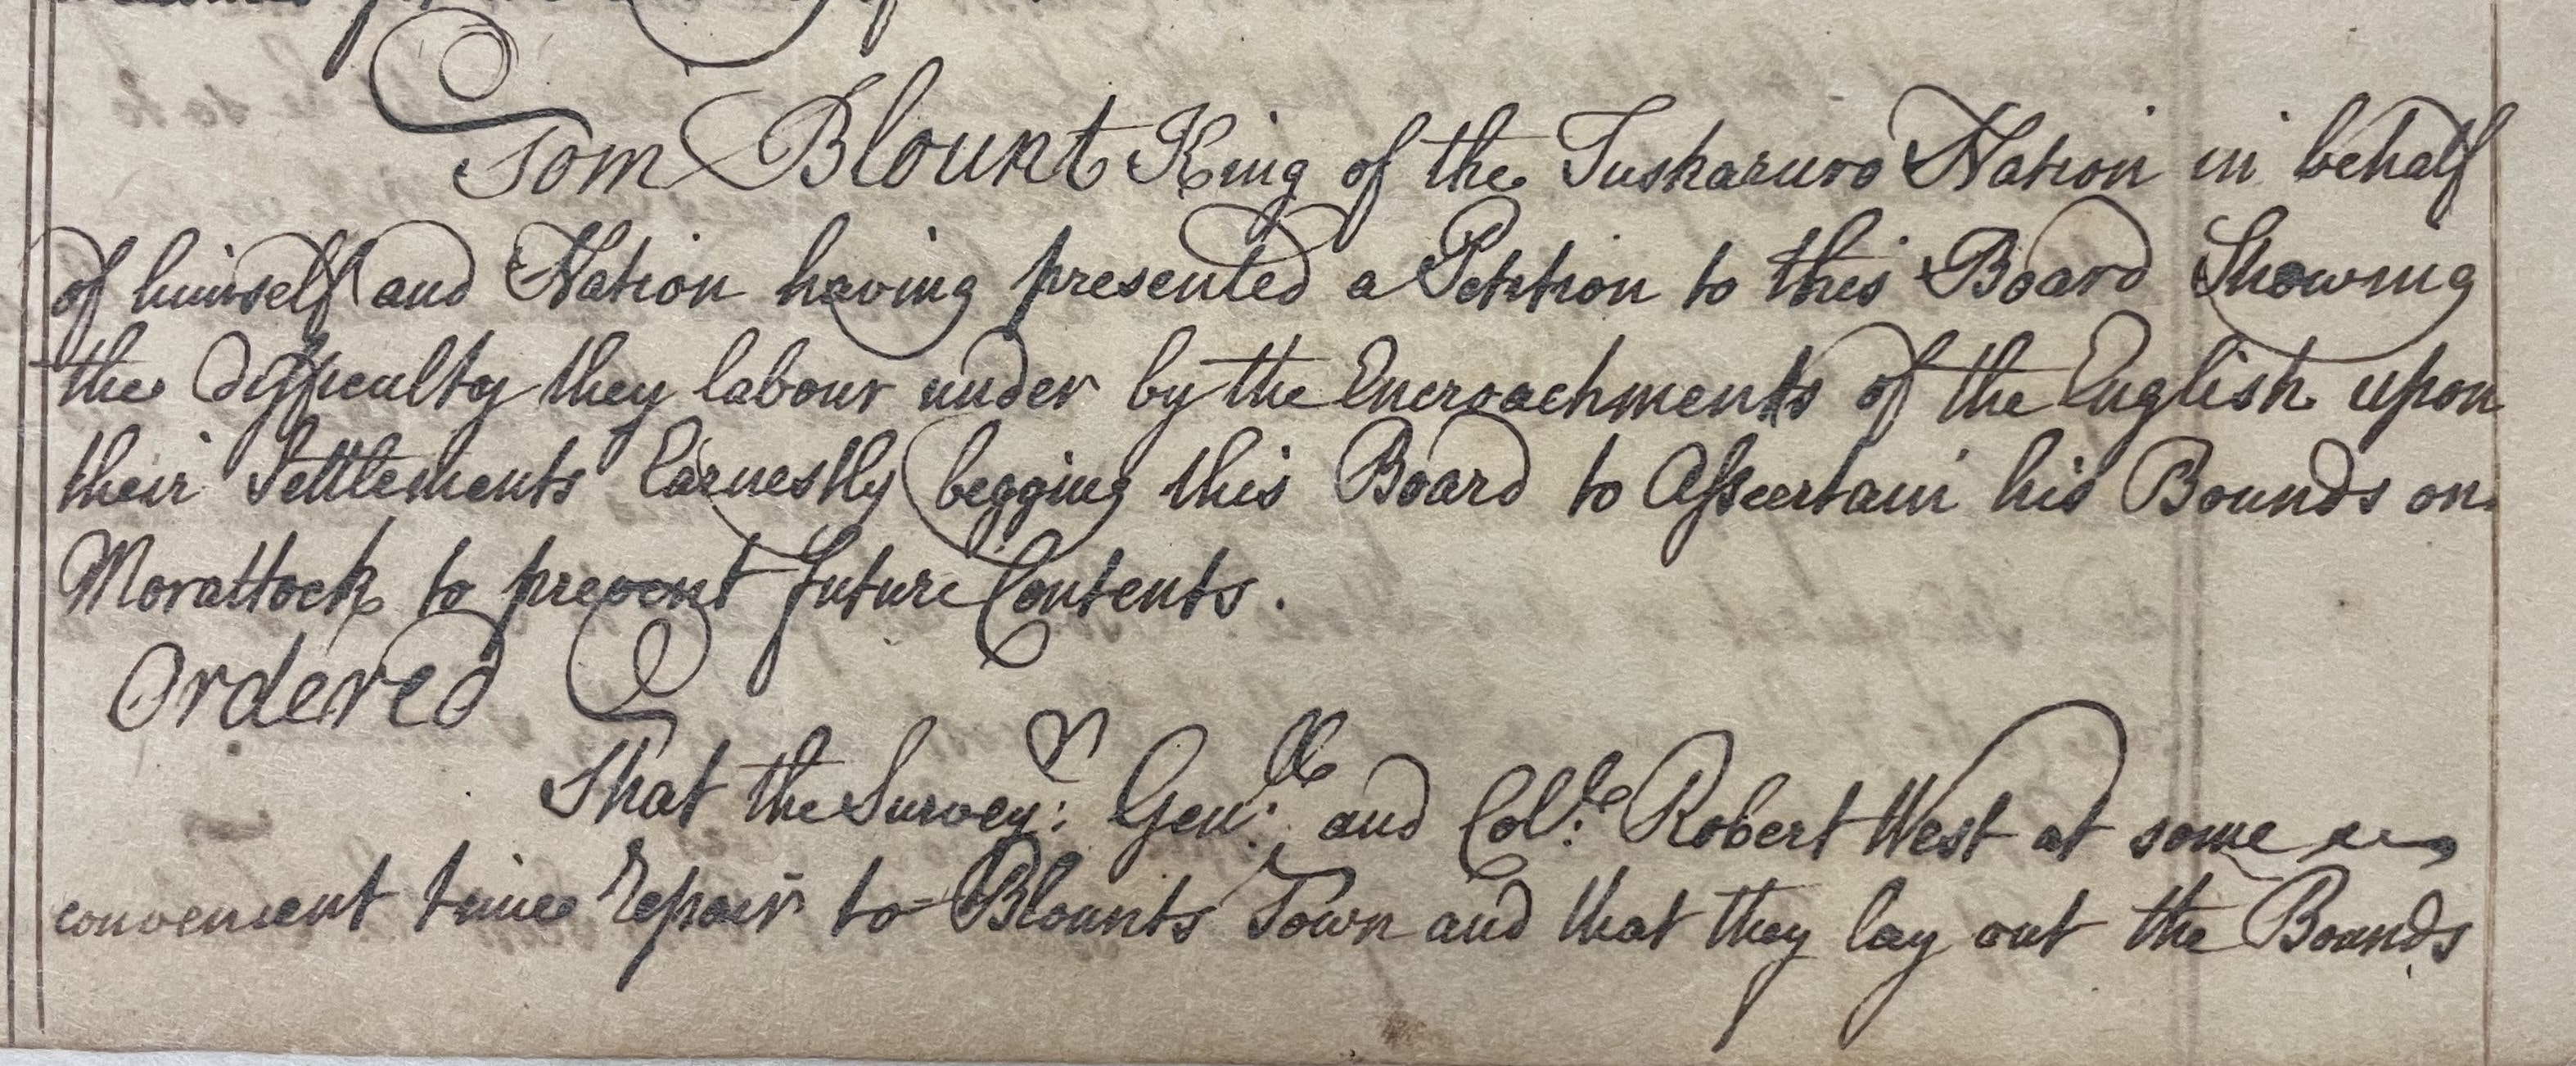 Tom Blount King of the Tuskaruro Nation in behalf
of himself and Nation having presented a Petition to this Board Showing
the Difficulty they labour under by the Encroachments of the English upon
their Settlements Earnestly begging this Board to Asscertain his Bounds on
Morattock to prevent future Contents.
Ordered
That the Survey:r Gen:ll and Col:le Robert West at some
convenient time Repair to Blounts Town and that they lay out the Bounds